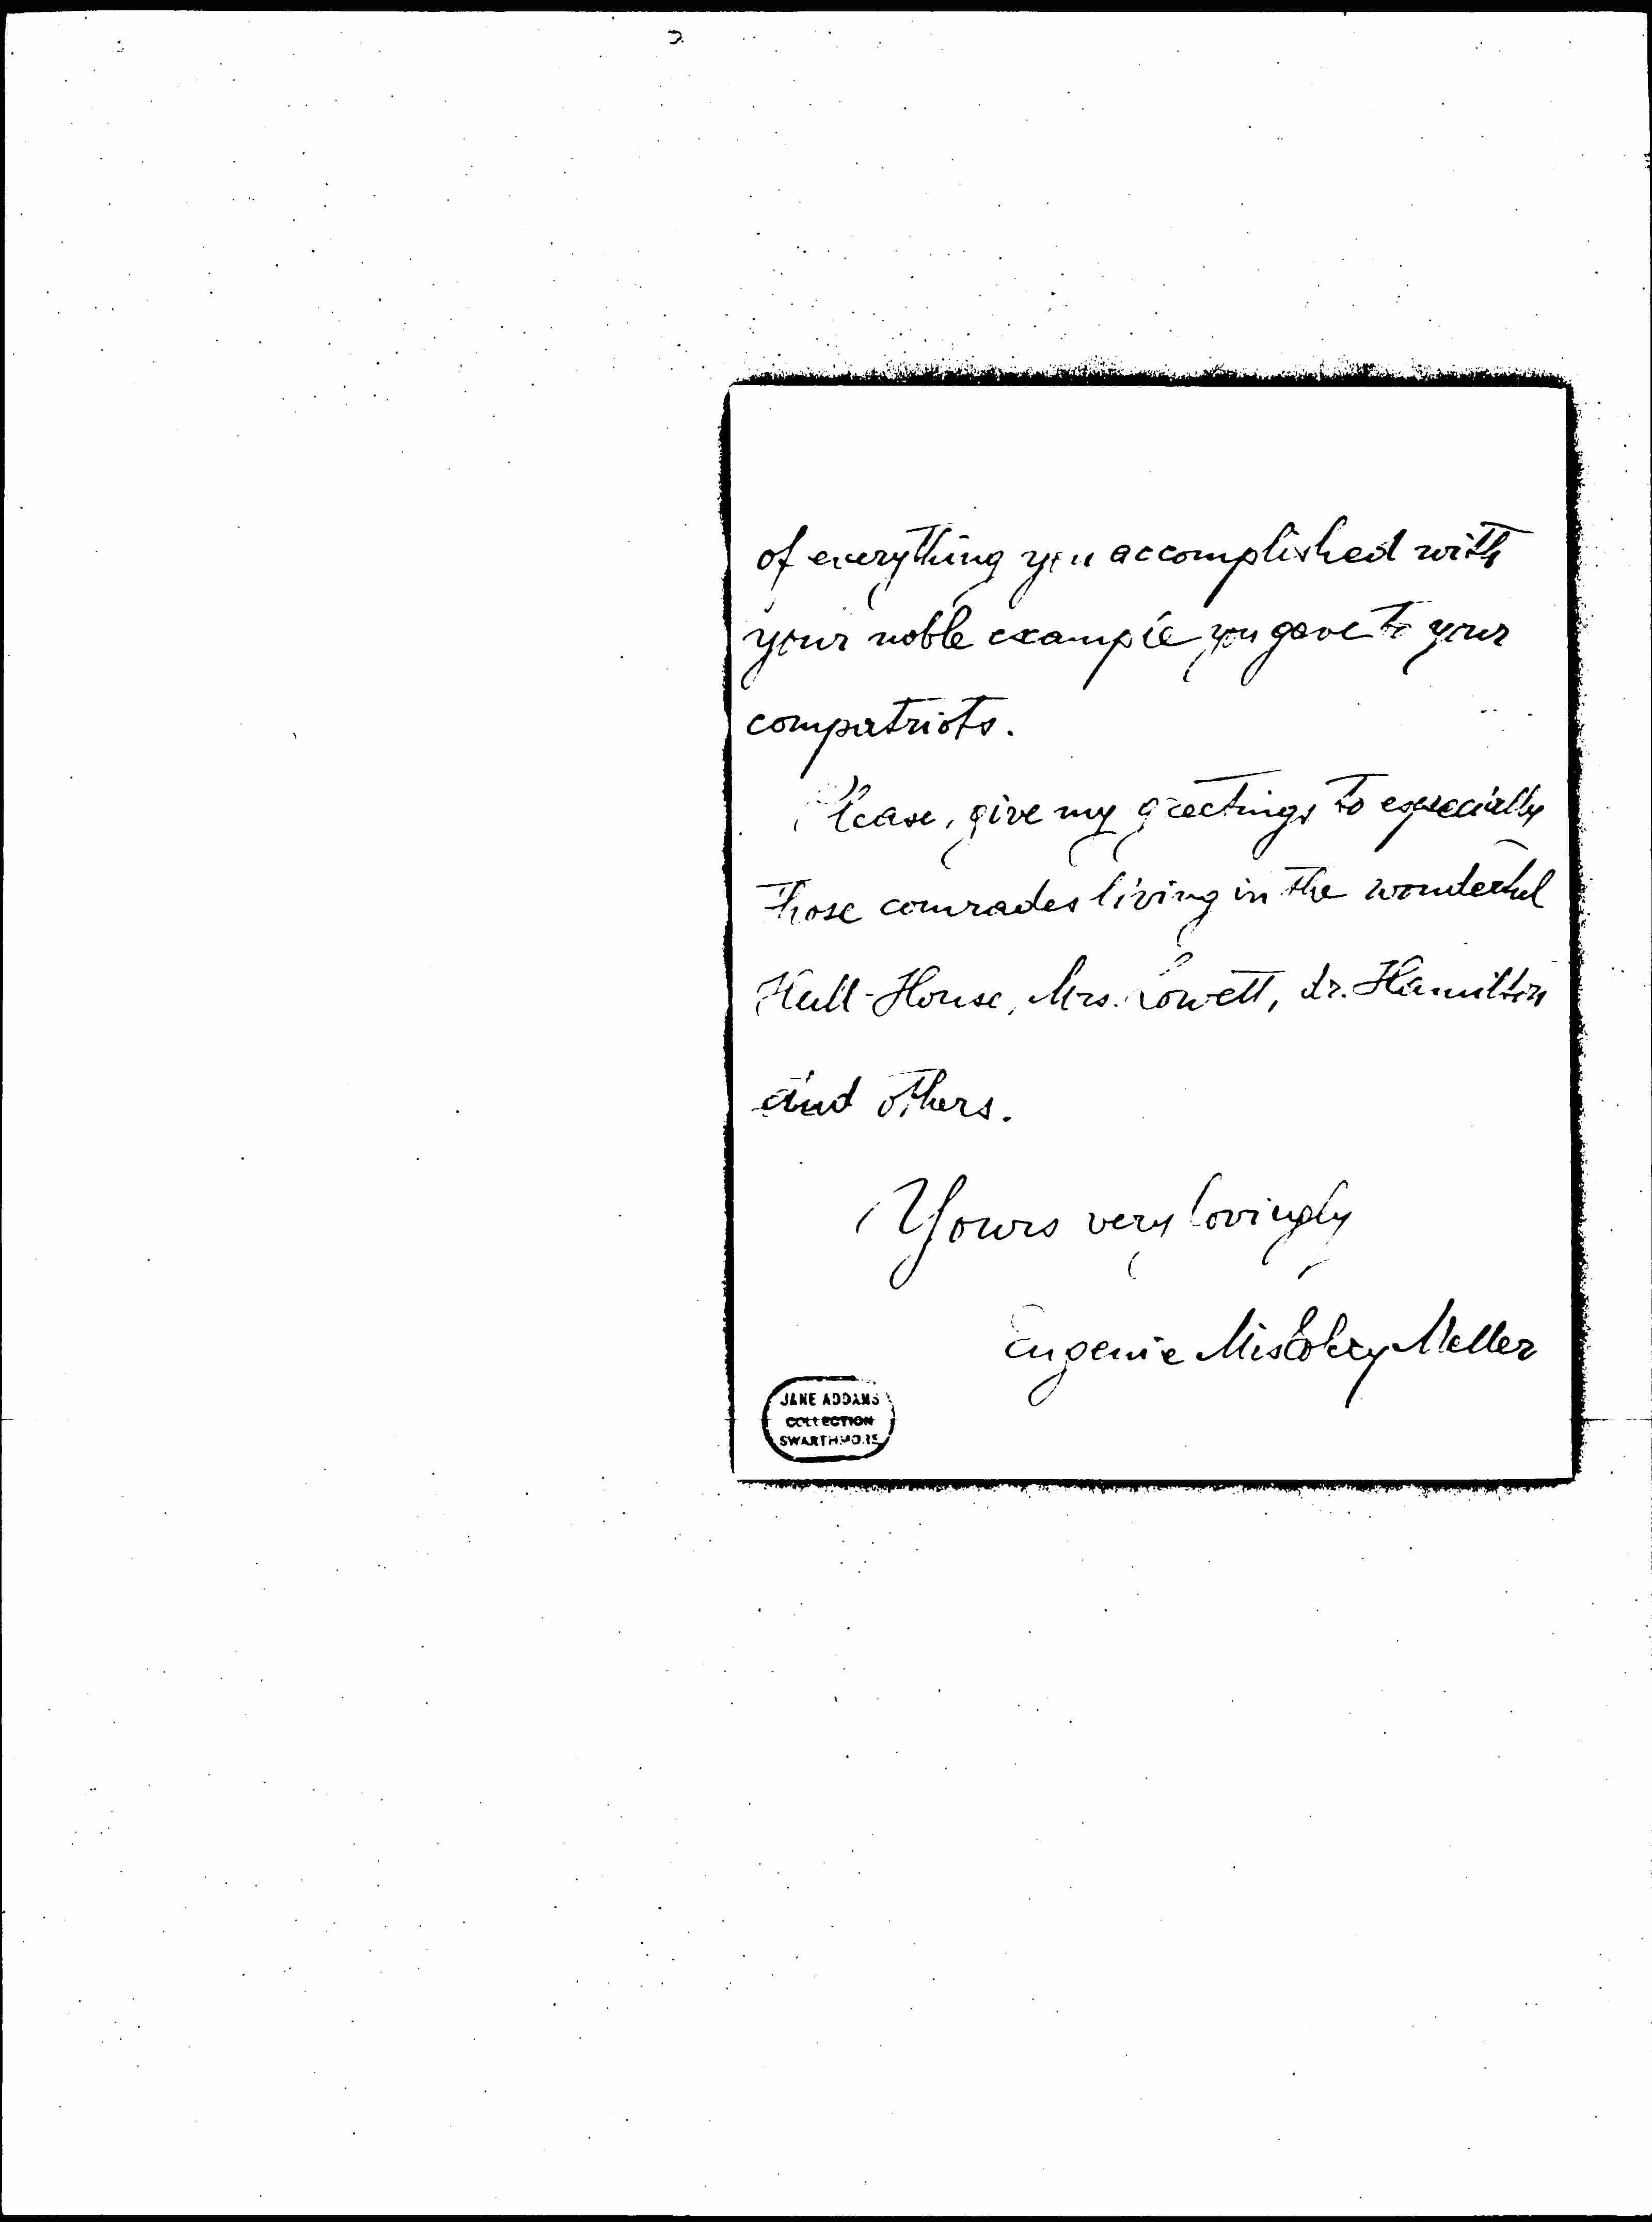 of everything you accomplished with
your noble example you gave to your
compatriots.
Please, give my greetings to especially
those comrades living in the wonderful
Hull-House, Mrs. Lowett, dr. Hamilton
and others.
Yours very lovingly
Eugenie Miskolczy Meller
JANE ADDAMS
COLLECTION
SWARTHMORE